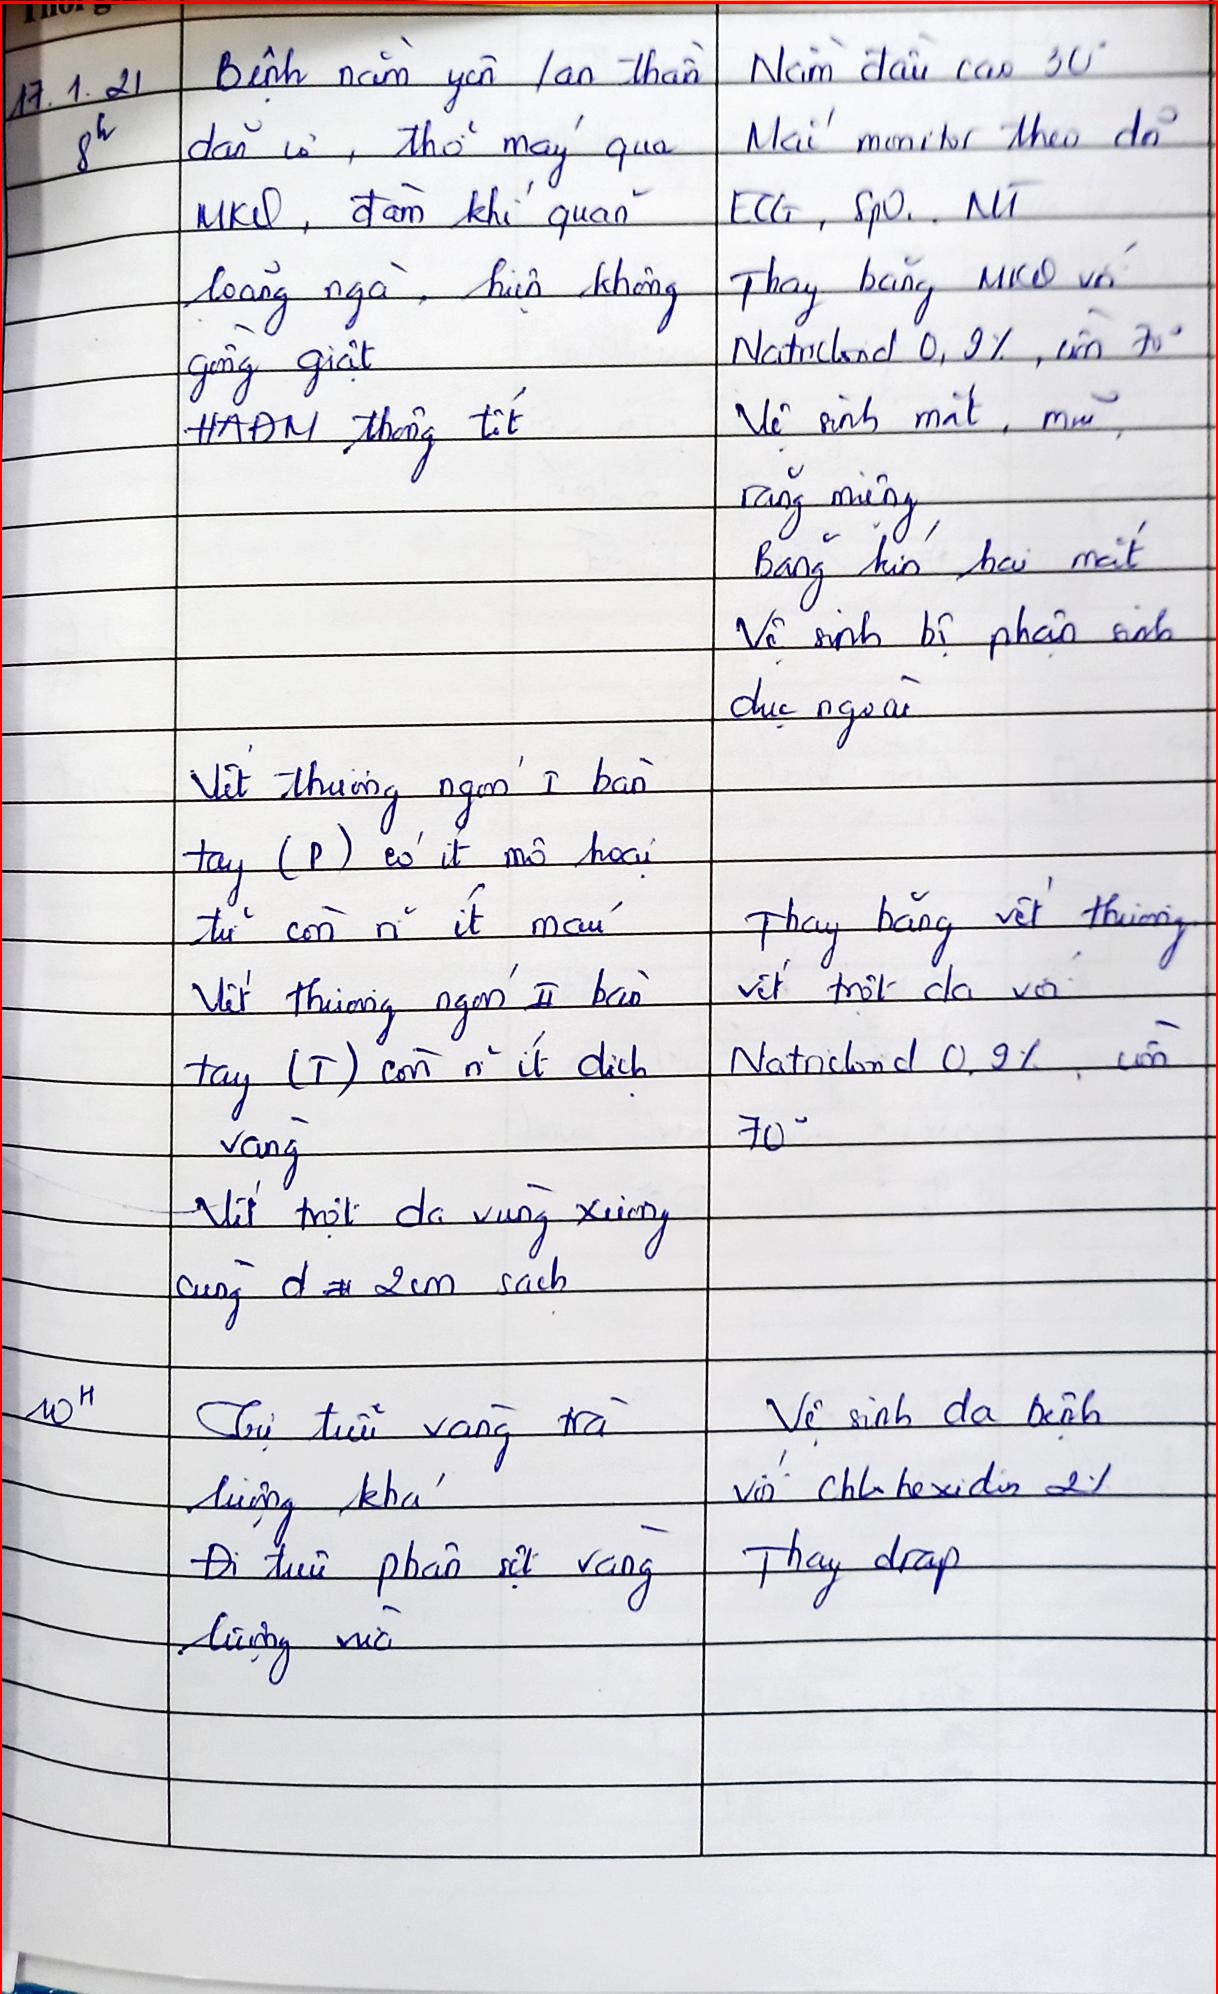 Thời g
17.1.21
8h
Bệnh nằm yên /an thần
dãn cơ, thở máy qua
MKQ, đàm khí quản
loãng ngà, hiện không
gồng giật
HAĐM thông tốt
Nằm đầu cao 30°
Mắc monitor theo dõi
ECG, SpO2, NT
Thay băng MKQ với
Natriclorid 0,9%, cồn 70°
Vệ sinh mắt, mũi,
răng miệng
Băng kín hai mắt
Vệ sinh bộ phận sinh
dục ngoài
Vết thương ngón I bàn
tay (P) có ít mô hoại
tử còn rỉ ít máu
Vết thương ngón II bàn
tay (T) còn rỉ ít dịch
vàng
Vết trợt da vùng xương
cùng d ≈ 2cm sạch
Thay băng vết thương
vết trợt da với
Natriclorid 0,9%, cồn
70°
10H
Tự tiểu vàng trà
lượng khá
Đi tiêu phân sệt vàng
lượng vừa
Vệ sinh da bệnh
với Chlohexidin 2%
Thay drap